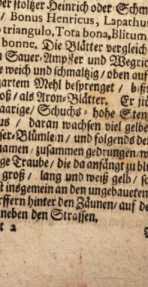 der stolzer Heinrich oder Schm
/ Bonus Henricus, Lapathu
triangulo, Tota bona, Blitum
bonne. Die Blätter vergleich
n Sauer-Ampffer und Wegric
e weich und schmaltzig / oben auf
gartem Mehl besprenget /
oß / als Aron-Blätter. Er
aarige / Schuchs-hohe Sten
us / daran wachsen viel gelbe
ser-Blümlein / und folgends de
namen / zusammen gedrungen / w
ge Traube / die da anfängt zu bl
groß / lang und weiß gelb / so
t insgemein an den ungebaueten
rffern hinter den Zäunen / auf de
neben den Strassen.
t 2